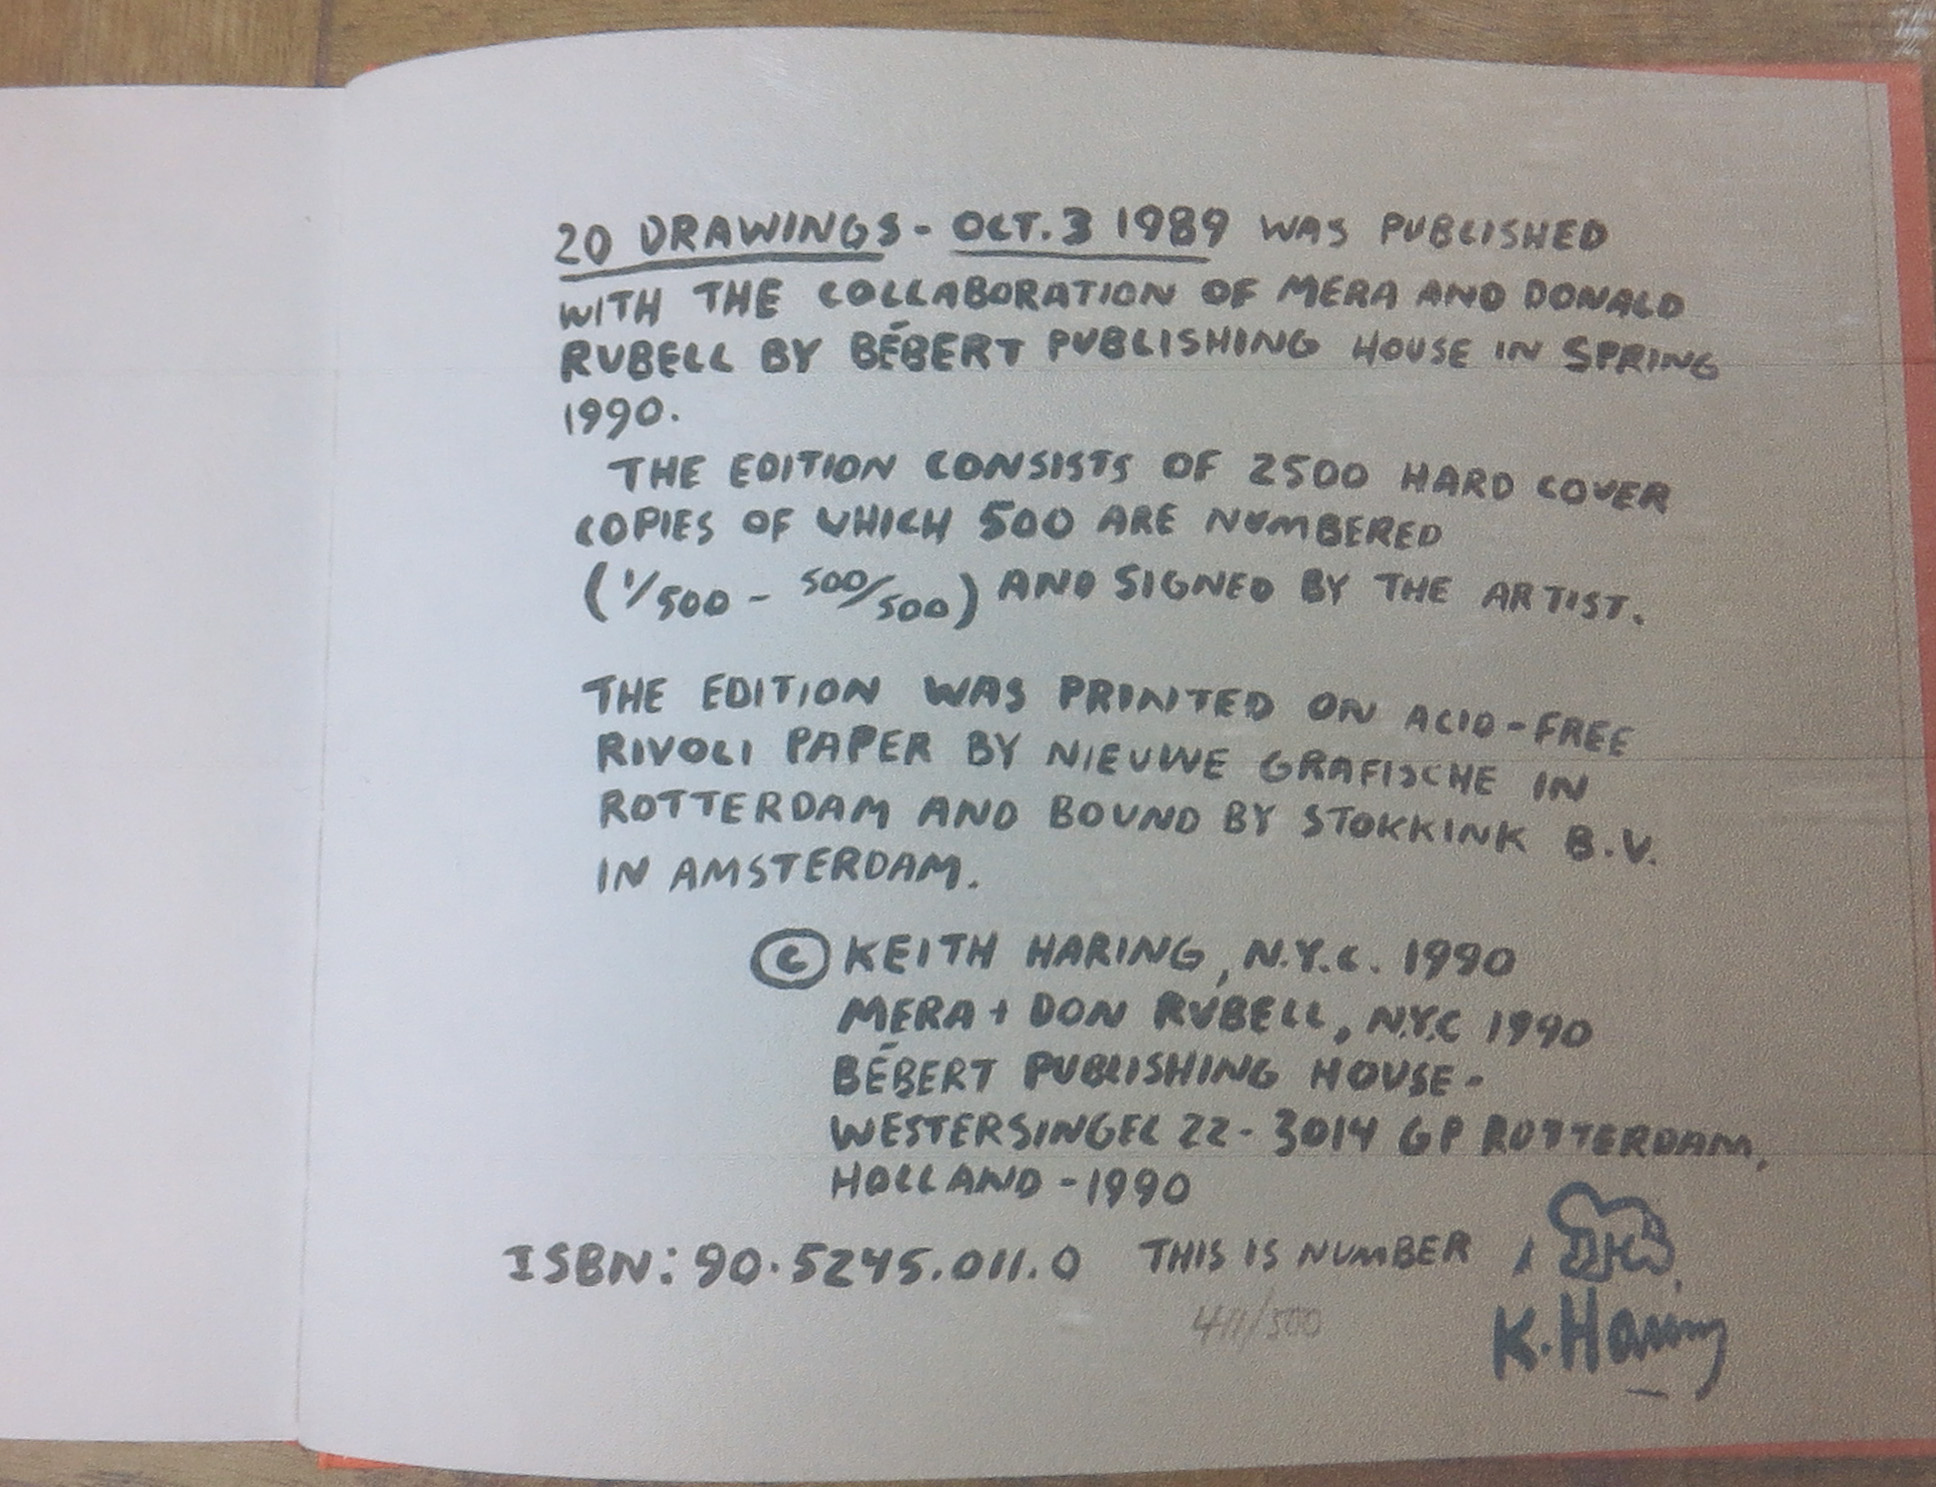 20 DRAWINGS - OCT. 3 1989 WAS PUBLISHED
WITH THE COLLABORATION OF MERA AND DONALD
RUBELL BY BÉBERT PUBLISHING HOUSE IN SPRING
1990.
THE EDITION CONSISTS OF 2500 HARD COVER
COPIES OF WHICH 500 ARE NUMBERED
(1/500 - 500/500) AND SIGNED BY THE ARTIST.
THE EDITION WAS PRINTED ON ACID-FREE
RIVOLI PAPER BY NIEUWE GRAFISCHE IN
ROTTERDAM AND BOUND BY STOKKINK B.V.
IN AMSTERDAM.
© KEITH HARING, N.Y.C. 1990
MERA + DON RUBELL, N.Y.C 1990
BÉBERT PUBLISHING HOUSE -
WESTERSINGEL 22 - 3014 GP ROTTERDAM,
HOLLAND - 1990
ISBN: 90.5245.011.0 THIS IS NUMBER
411/500
K. Haring